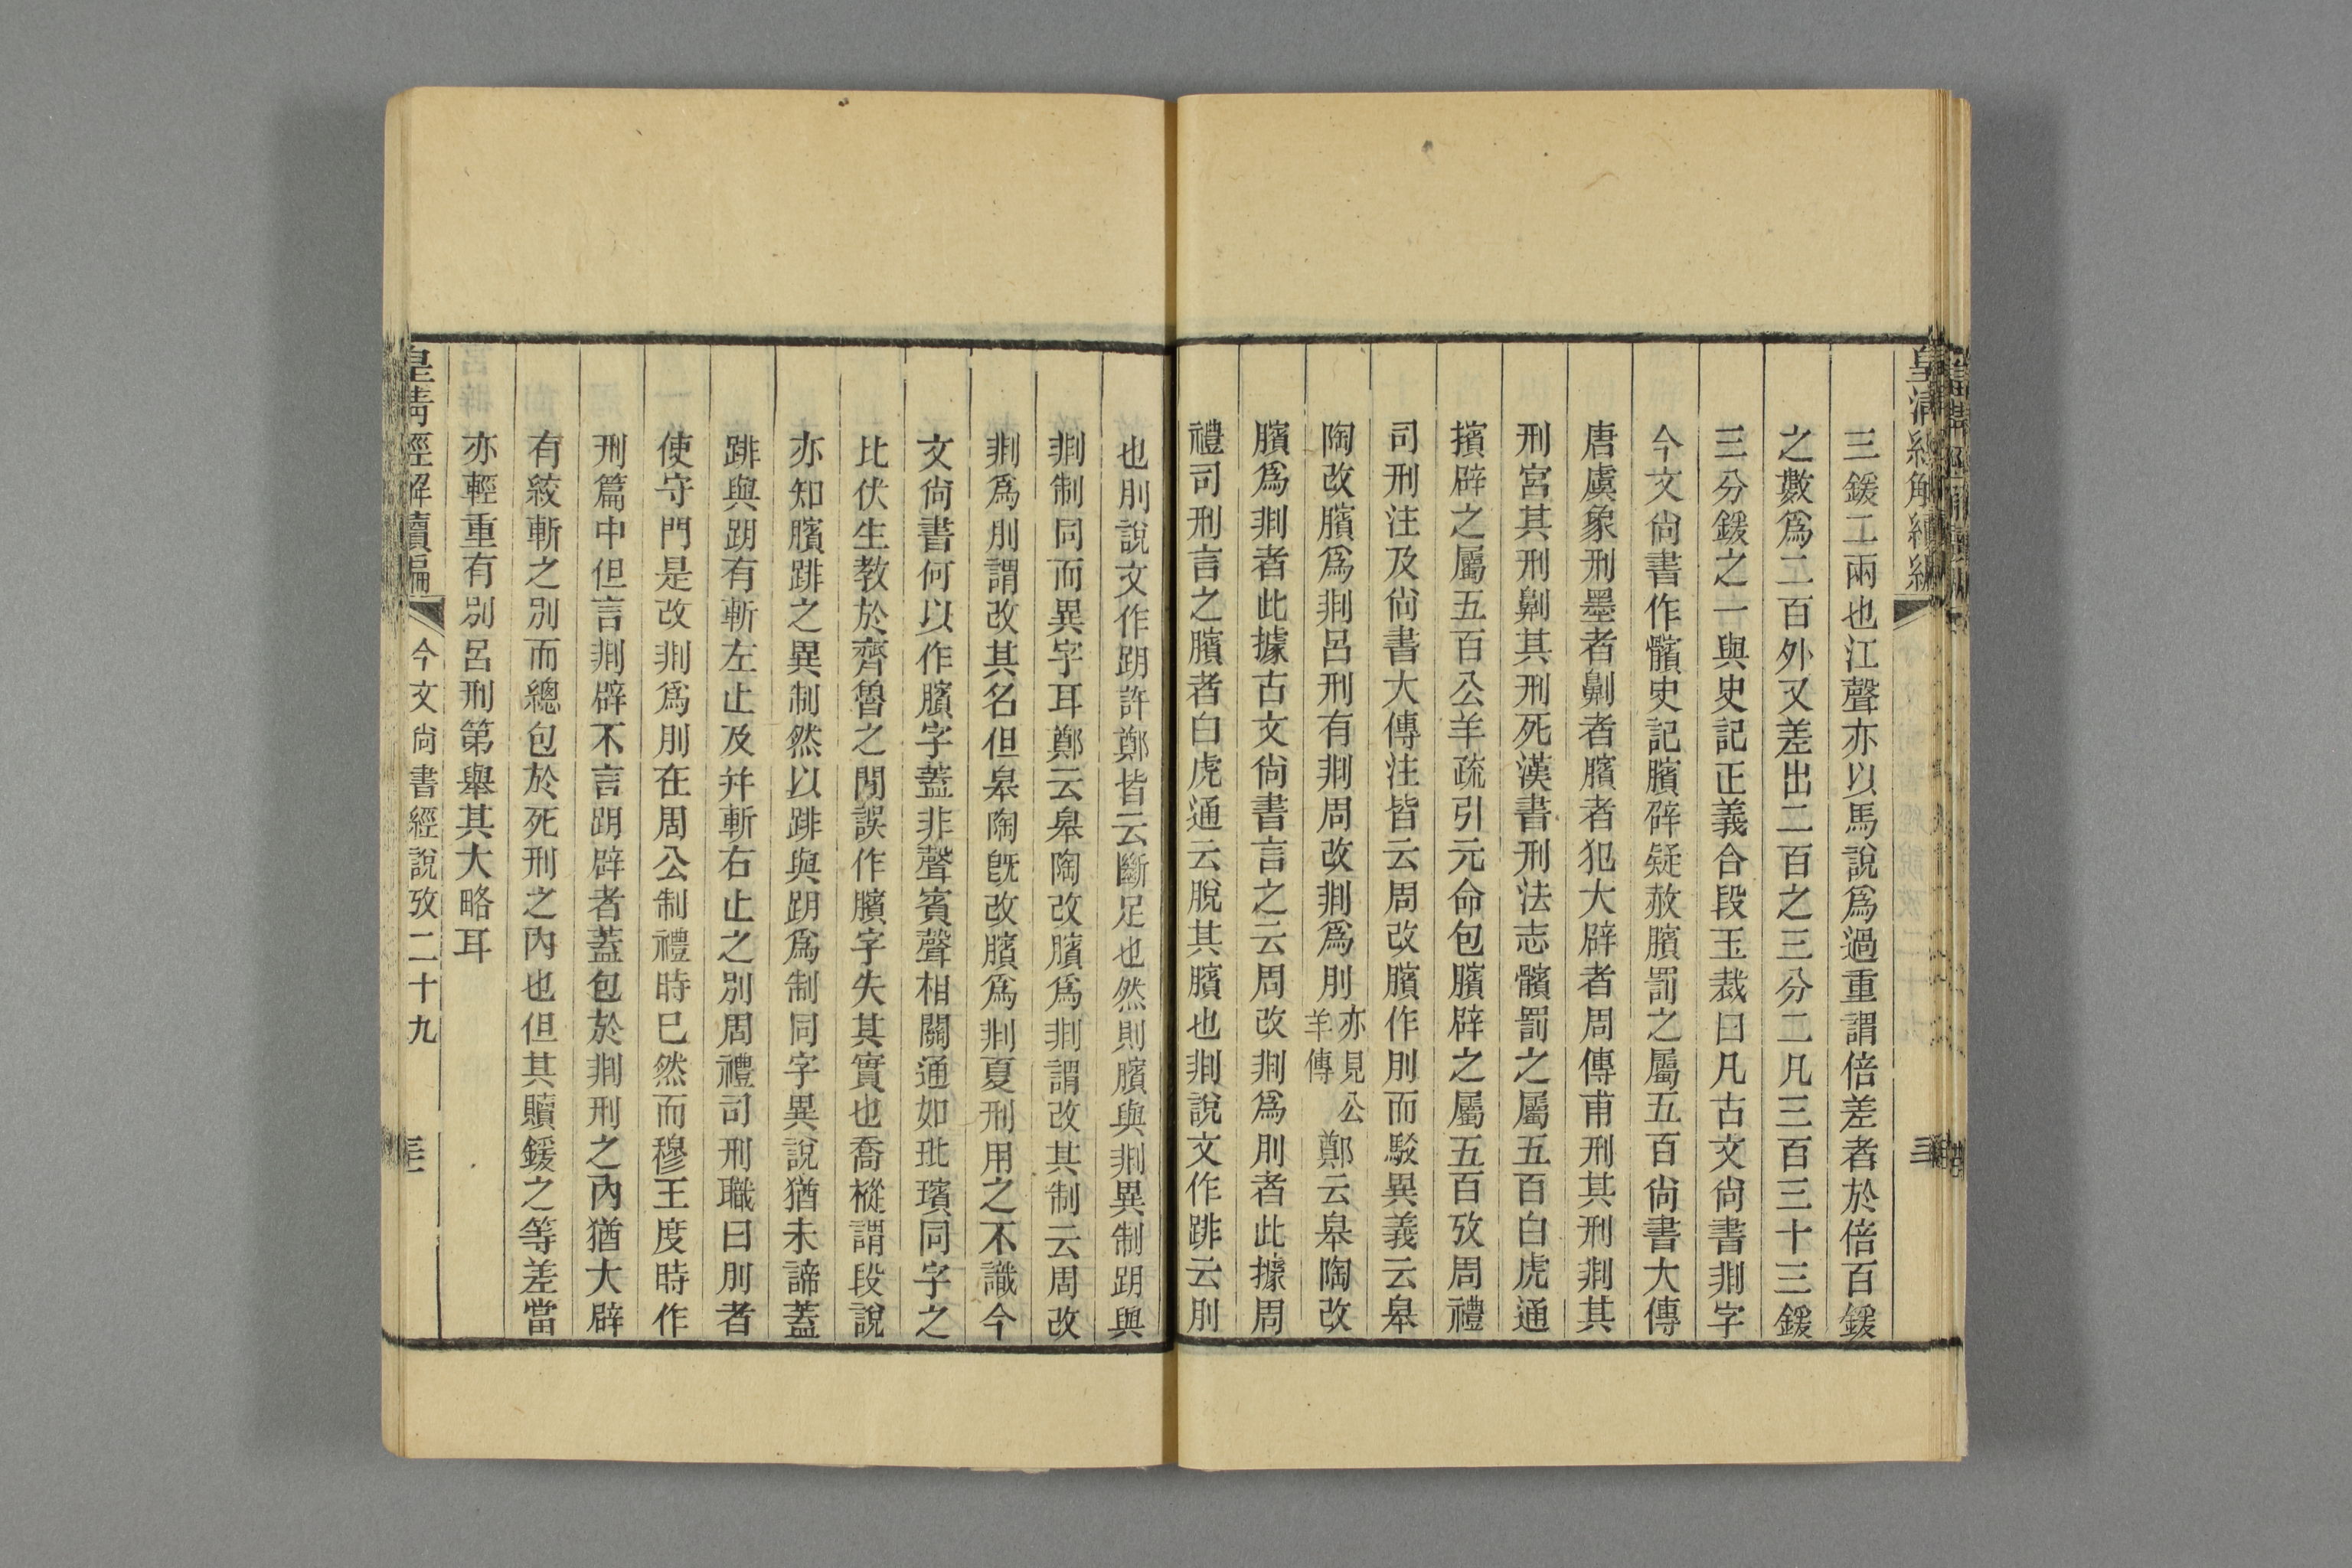 三鍰二兩也江聲亦以馬說爲過重謂倍差者於倍百鍰
之數爲二百外又差出二百之三分二凡三百三十三鍰
三分鍰之一與史記正義合段玉裁曰凡古文尙書剕字
今文尙書作髕史記臏辟疑赦臏罰之屬五百尙書大傳
唐虞象刑墨者劓者臏者犯大辟者周傳甫刑其刑剕其
刑宮其刑劓其刑死漢書刑法志髕罰之屬五百白虎通
擯辟之屬五百公羊疏引元命包臏辟之屬五百攷周禮
司刑注及尙書大傳注皆云周改臏作刖而駁異義云皋
陶改臏爲剕呂刑有剕周改剕爲刖亦見公羊傳鄭云皋陶改
臏爲剕者此據古文尙書言之云周改剕爲刖者此據周
禮司刑言之臏者白虎通云脫其臏也剕說文作跸云刖
也刖說文作跀許鄭皆云斷足也然則臏與剕異制跀與
剕制同而異字耳鄭云皋陶改臏爲剕謂改其制云周改
剕爲刖謂改其名但皋陶旣改臏爲剕夏刑用之不識今
文尙書何以作臏字蓋非聲賓聲相關通如玭璸同字之
比伏生敎於齊魯之閒誤作臏字失其實也喬樅謂段說
亦知臏跸之異制然以跸與跀爲制同字異說猶未諦蓋
跸與跀有斬左止及并斬右止之別周禮司刑職曰刖者
使守門是改剕爲刖在周公制禮時已然而穆王度時作
刑篇中但言剕辟不言跀辟者蓋包於剕刑之內猶大辟
有絞斬之別而總包於死刑之內也但其贖鍰之等差當
亦輕重有別呂刑第舉其大略耳
皇淸經解續編
今文尙書經說攷二十九